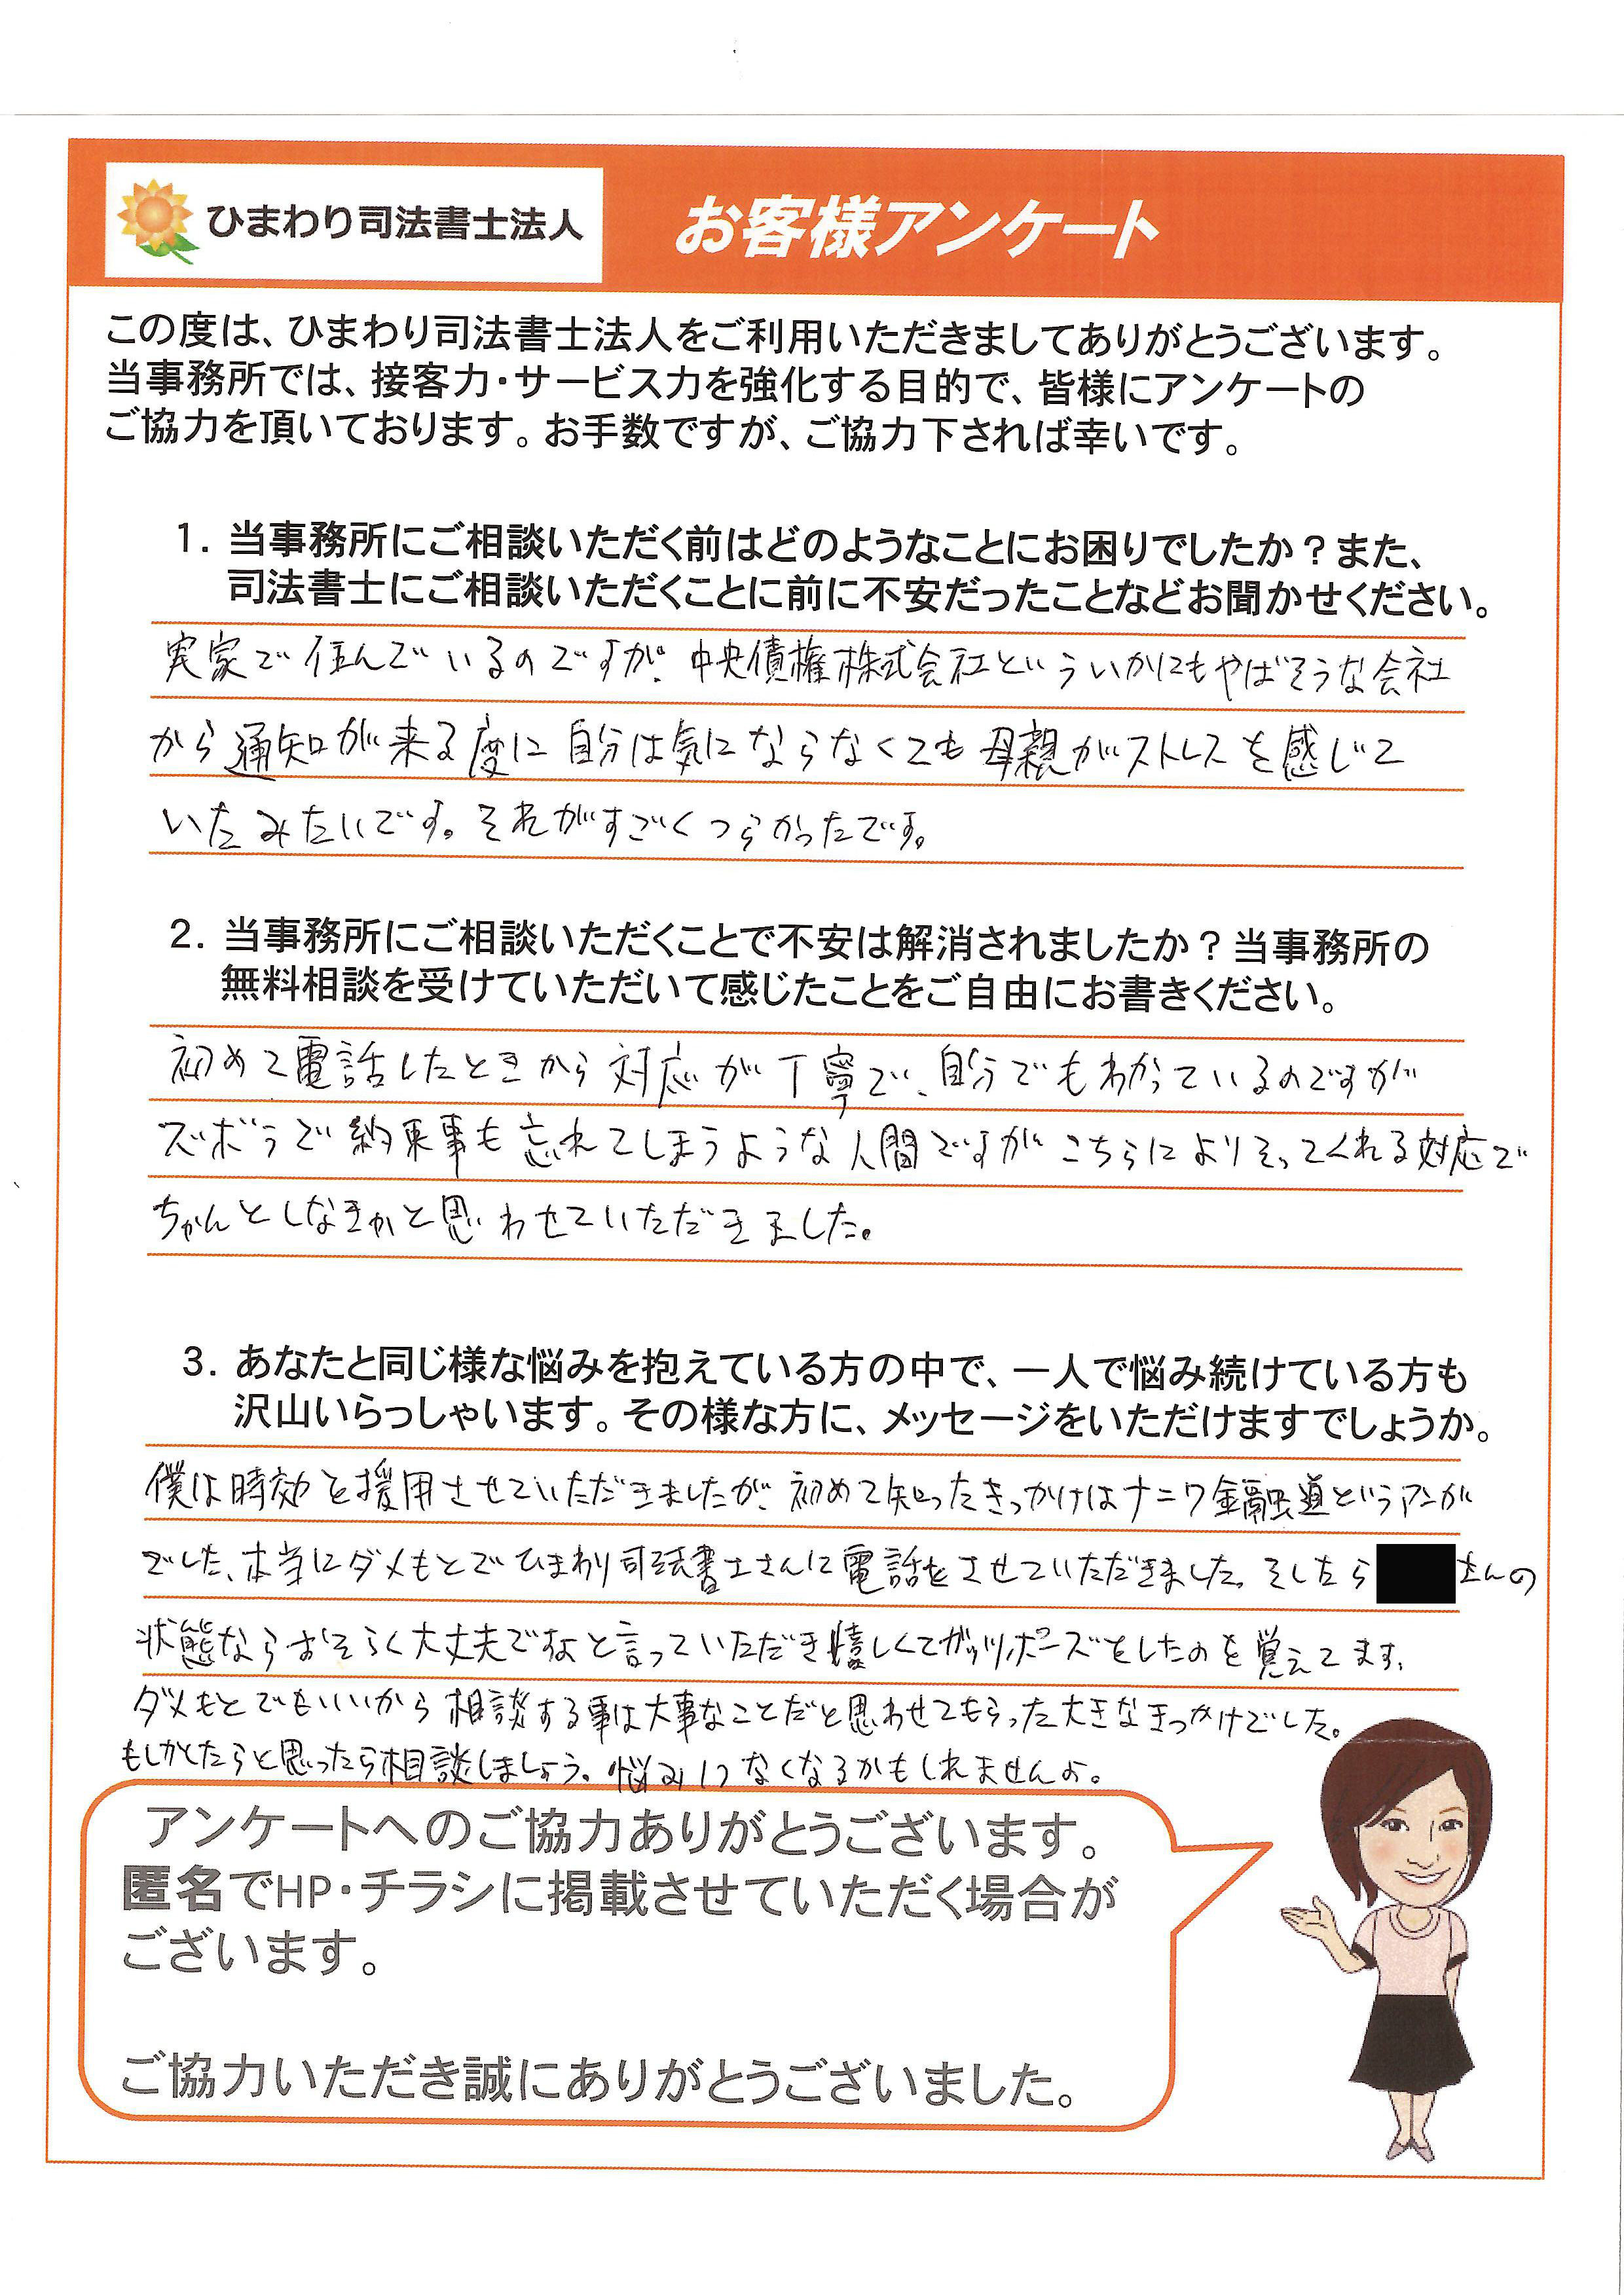 ひまわり司法書士法人
お客様アンケート
この度は、ひまわり司法書士法人をご利用いただきましてありがとうございます。
当事務所では、接客力・サービス力を強化する目的で、皆様にアンケートの
ご協力を頂いております。お手数ですが、ご協力下されば幸いです。
1. 当事務所にご相談いただく前はどのようなことにお困りでしたか？また、
司法書士にご相談いただくことに前に不安だったことなどお聞かせください。
実家で住んでいるのですが、中央債権株式会社といういかにもやばそうな会社
から通知が来る度に自分は気にならなくても母親がストレスを感じて
いたみたいです。それがすごくつらかったです。
2. 当事務所にご相談いただくことで不安は解消されましたか？当事務所の
無料相談を受けていただいて感じたことをご自由にお書きください。
初めて電話したときから対応が丁寧で、自分でもわかっているのですが
ズボラで約束事も忘れてしまうような人間ですがこちらによりそってくれる対応で
ちゃんとしなきゃと思わせていただきました。
3. あなたと同じ様な悩みを抱えている方の中で、一人で悩み続けている方も
沢山いらっしゃいます。その様な方に、メッセージをいただけますでしょうか。
僕は時効を援用させていただきましたが、初めて知ったきっかけはナニワ金融道というマンガ
でした、本当にダメもとでひまわり司法書士さんに電話をさせていただきました。そしたら さんの
状態ならおそらく大丈夫ですよと言っていただき嬉しくてガッツポーズをしたのを覚えてます、
ダメもとでもいいから相談する事は大事なことだと思わせてもらった大きなきっかけでした。
もしかしたらと思ったら相談しましょう。悩み1つなくなるかもしれませんよ。
アンケートへのご協力ありがとうございます。
匿名でHP・チラシに掲載させていただく場合が
ございます。
ご協力いただき誠にありがとうございました。